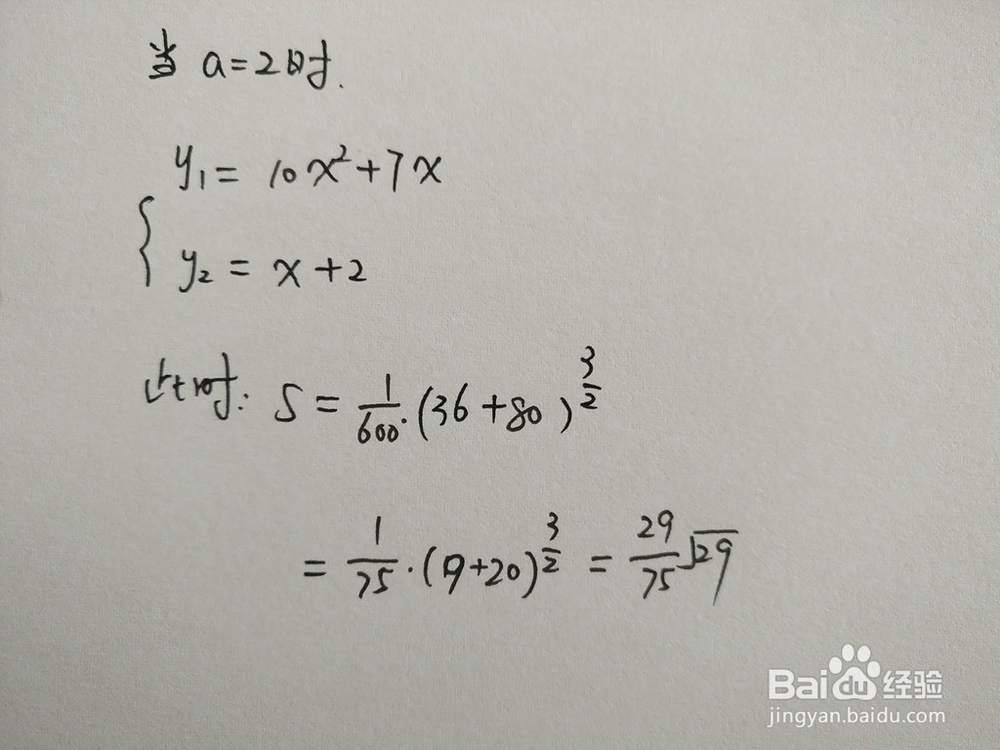 当 a=2时.
y₁= 10x²+7x
{
y₂ = x+2
此时: S = 1/600·(36+80)^(3/2)
= 1/75·(9+20)^(3/2) = 29/75√29
Baidu经验
jingyan.baidu.com